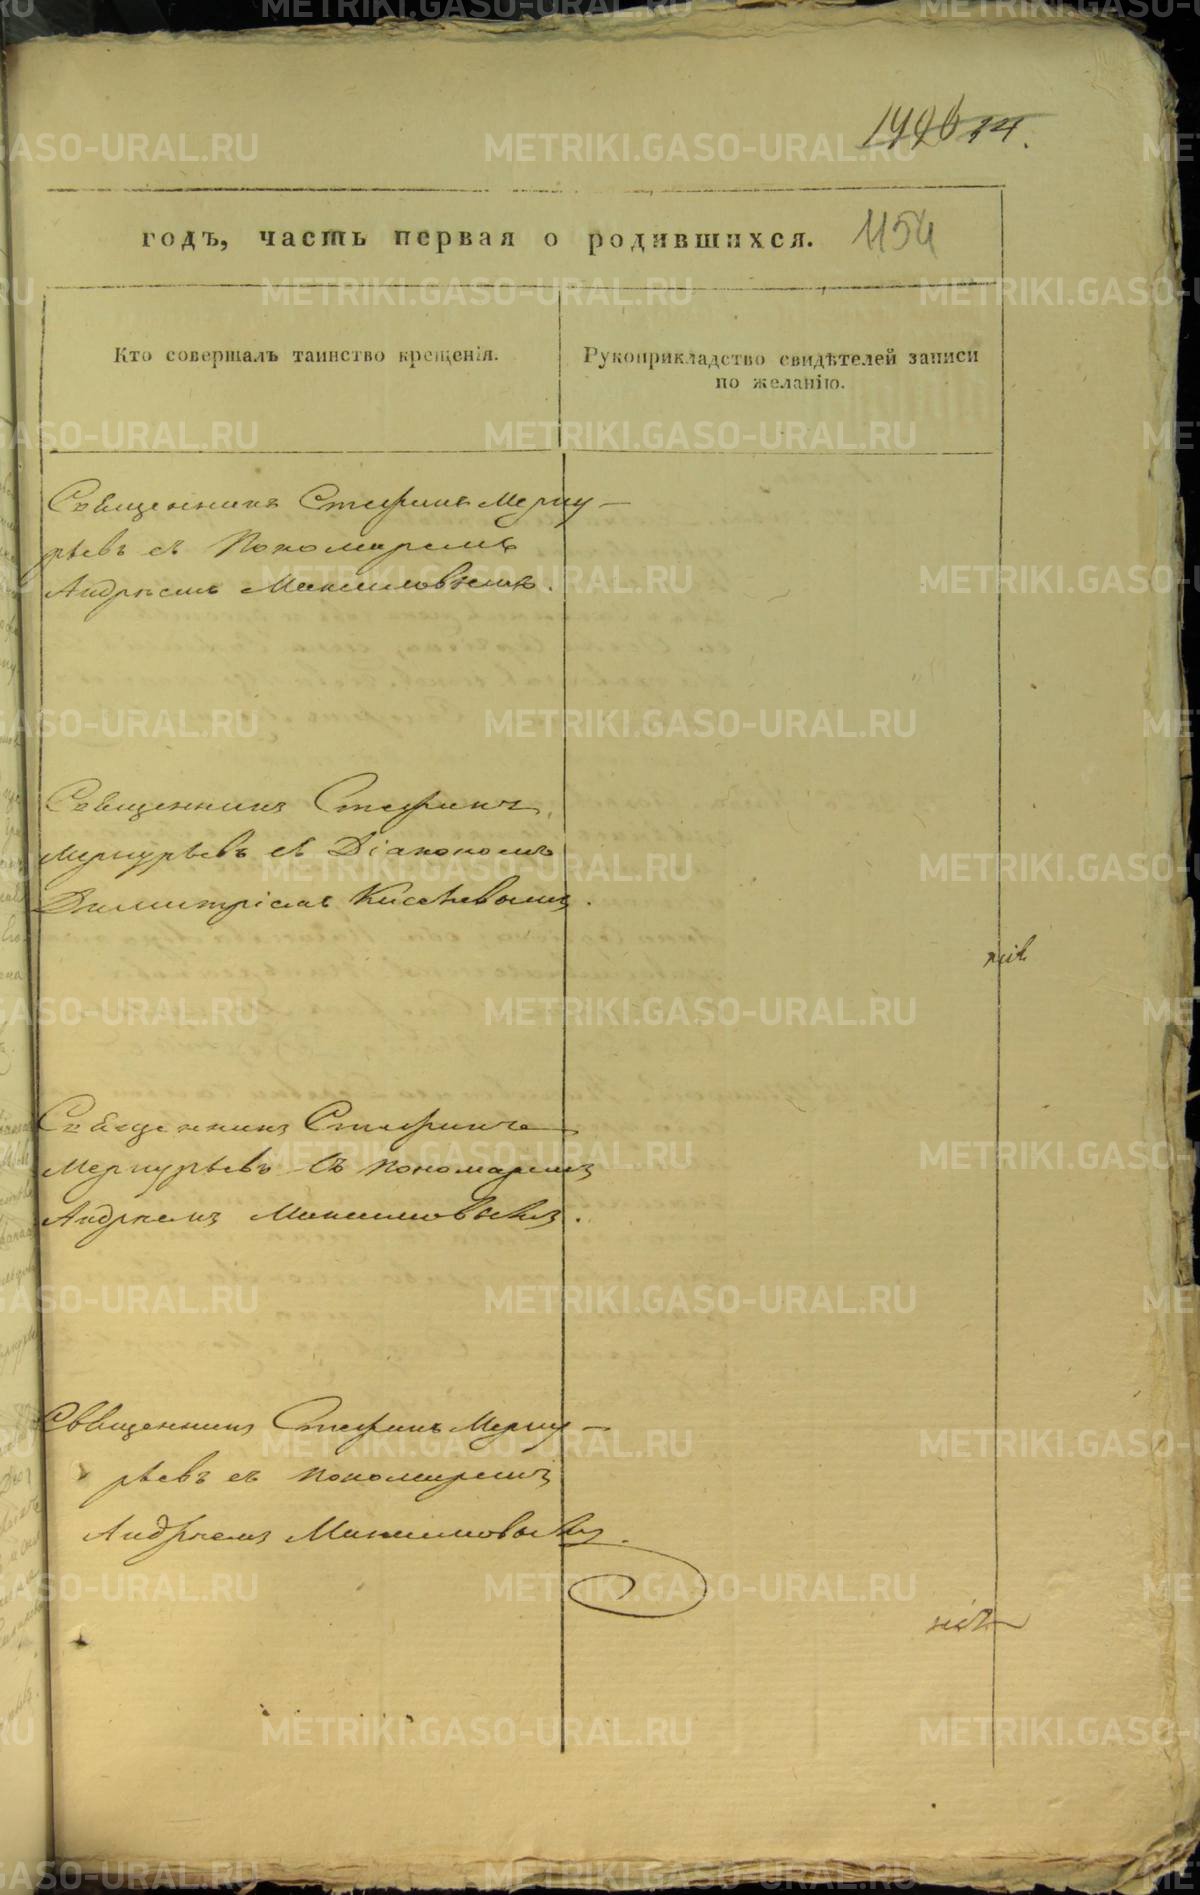 годъ, часть первая о родившихся. 1154
Кто совершалъ таинство крещенія.
Рукоприкладство свидѣтелей записи
по желанію.
Священникъ Стефанъ Мерку–
рьевъ съ Пономаремъ
Андреемъ Максимовымъ.
Священникъ Стефанъ
Меркурьевъ съ Діакономъ
Димитріемъ Киселевымъ.
Священникъ Стефанъ
Меркурьевъ съ пономаремъ
Андреемъ Максимовымъ.
Священникъ Стефанъ Мерку–
рьевъ съ пономаремъ
Андреемъ Максимовымъ.
METRIKI.GASO-URAL.RU